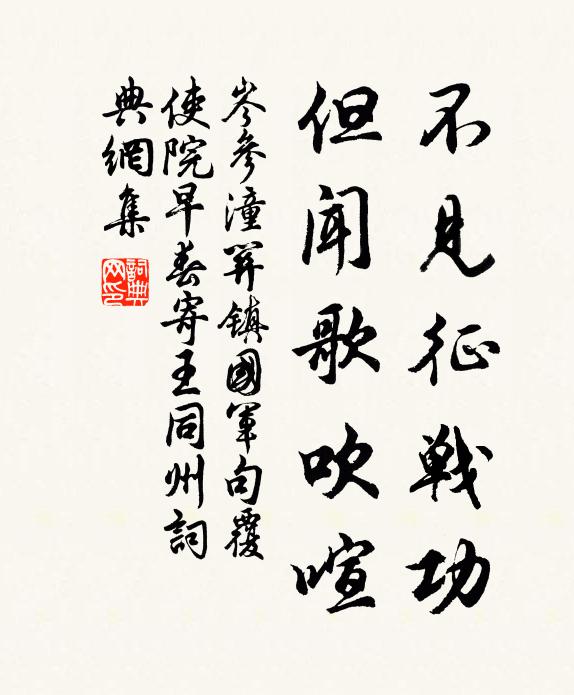 不見征戰功
但聞歌吹喧
岑參潼關鎮國軍句覆
使院早春寄王同州詞
典網集
詞典網印